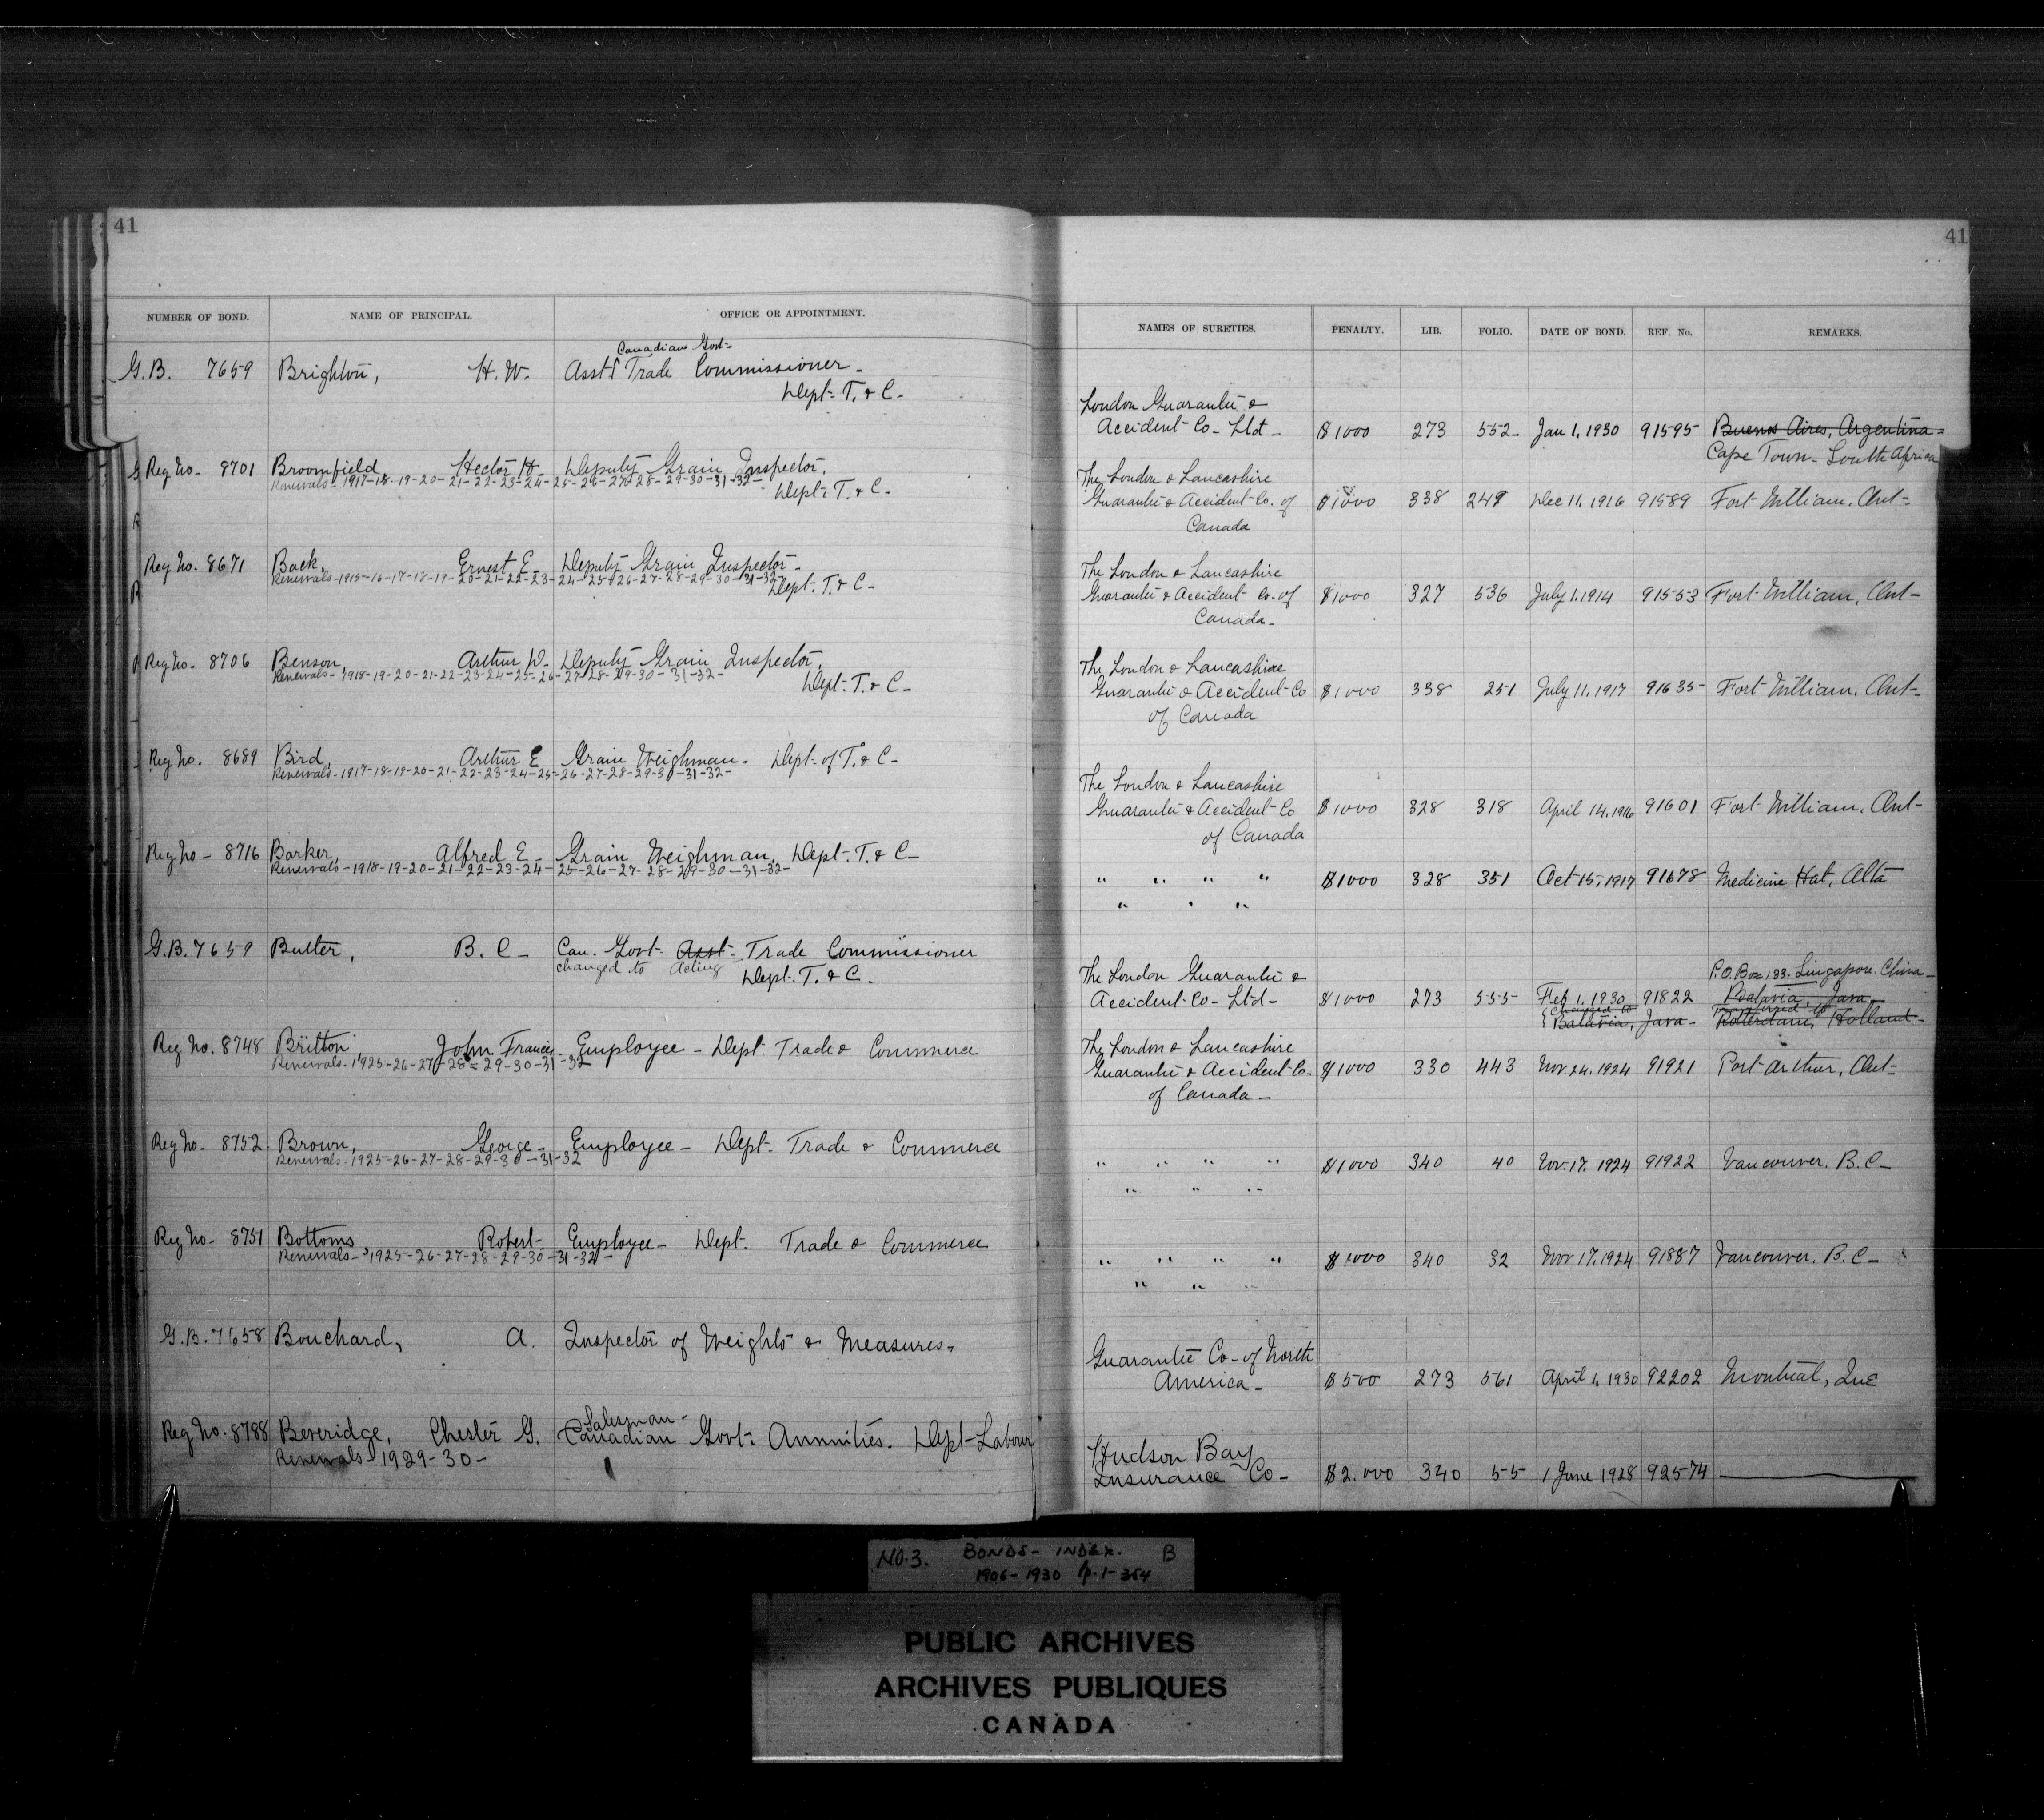 41
NUMBER OF BOND. NAME OF PRINCIPAL. OFFICE OR APPOINTMENT.
Canadian Govt-
G.B. 7659 Brighton, H. W. Asst Trade Commissioner-
Dept- T. & C-
Reg No- 8701 Broomfield, Hector H- Deputy Grain Inspector,
Renewals-1917-18-19-20-21-22-23-24-25-26-27-28-29-30-31-32-
Dept- T. & C-
Reg No. 8671 Back, Ernest E- Deputy Grain Inspector-
Renewals-1915-16-17-18-19-20-21-22-23-24-25-26-27-28-29-30-31-32-
Dept. T. & C-
Reg No- 8706 Benson, Arthur W- Deputy Grain Inspector,
Renewals-1918-19-20-21-22-23-24-25-26-27-28-29-30-31-32-
Dept- T. & C-
Reg No. 8689 Bird, Arthur E Grain Weighman- Dept- of T. & C-
Renewals-1917-18-19-20-21-22-23-24-25-26-27-28-29-30-31-32-
Reg No- 8716 Barker, Alfred E- Grain Weighman, Dept- T. & C-
Renewals-1918-19-20-21-22-23-24-25-26-27-28-29-30-31-32-
G.B. 7659 Butler, B. C- Can. Govt- Asst- Trade Commissioner
changed to Acting Dept. T. & C.
Reg No. 8748 Britton John Francis Employee- Dept. Trade & Commerce
Renewals-1925-26-27-28-29-30-31-32
Reg No- 8752 Brown, George- Employee- Dept- Trade & Commerce
Renewals-1925-26-27-28-29-30-31-32
Reg No- 8751 Bottoms Robert- Employee- Dept- Trade & Commerce
Renewals-1925-26-27-28-29-30-31-32-
G.B. 7658 Bouchard, A. Inspector of Weights & Measures-
Salesman-
Reg No. 8788 Beveridge, Chester G. Canadian Govt- Annuities. Dept-Labour
Renewals-1929-30-
41
NAMES OF SURETIES. PENALTY. LIB. FOLIO. DATE OF BOND. REF. No. REMARKS.
London Guarantee &
Accident Co- Ltd- $1000 273 552- Jan 1, 1930 91595 Buenos Aires, Argentina-
Cape Town- South Africa
The London & Lancashire
Guarantee & Accident Co. of $1000 338 249 Dec 11, 1916 91589 Fort William, Ont-
Canada
The London & Lancashire
Guarantee & Accident Co. of $1000 327 536 July 1. 1914 91553 Fort William, Ont-
Canada-
The London & Lancashire
Guarantee & Accident Co $1000 338 251 July 11. 1917 91635 Fort William, Ont-
of Canada
The London & Lancashire
Guarantee & Accident Co $1000 328 318 April 14, 1916 91601 Fort William, Ont-
of Canada
" " " " $1000 328 351 Oct 15, 1917 91678 Medicine Hat, Alta
" " "
P.O. Box 133- Singapore China-
The London Guarantee &
Accident Co- Ltd- $1000 273 555- Feb 1. 1930 91822 Batavia, Java
changed to transferred to
Batavia, Java- Rotterdam, Holland-
The London & Lancashire
Guarantee & Accident Co- $1000 330 443 Nov. 24. 1924 91921 Port Arthur, Ont-
of Canada-
" " " " $1000 340 40 Nov. 17. 1924 91922 Vancouver. B. C-
" " "
" " " " $1000 340 32 Nov 17, 1924 91887 Vancouver. B. C-
" " "
Guarantee Co- of North
America- $500 273 561 April 1, 1930 92202 Montreal, Que
Hudson Bay
Insurance Co- $2.000 340 55 1 June 1928 92574
NO. 3. BONDS- INDEX. B
1906-1930 p. 1-354
PUBLIC ARCHIVES
ARCHIVES PUBLIQUES
CANADA